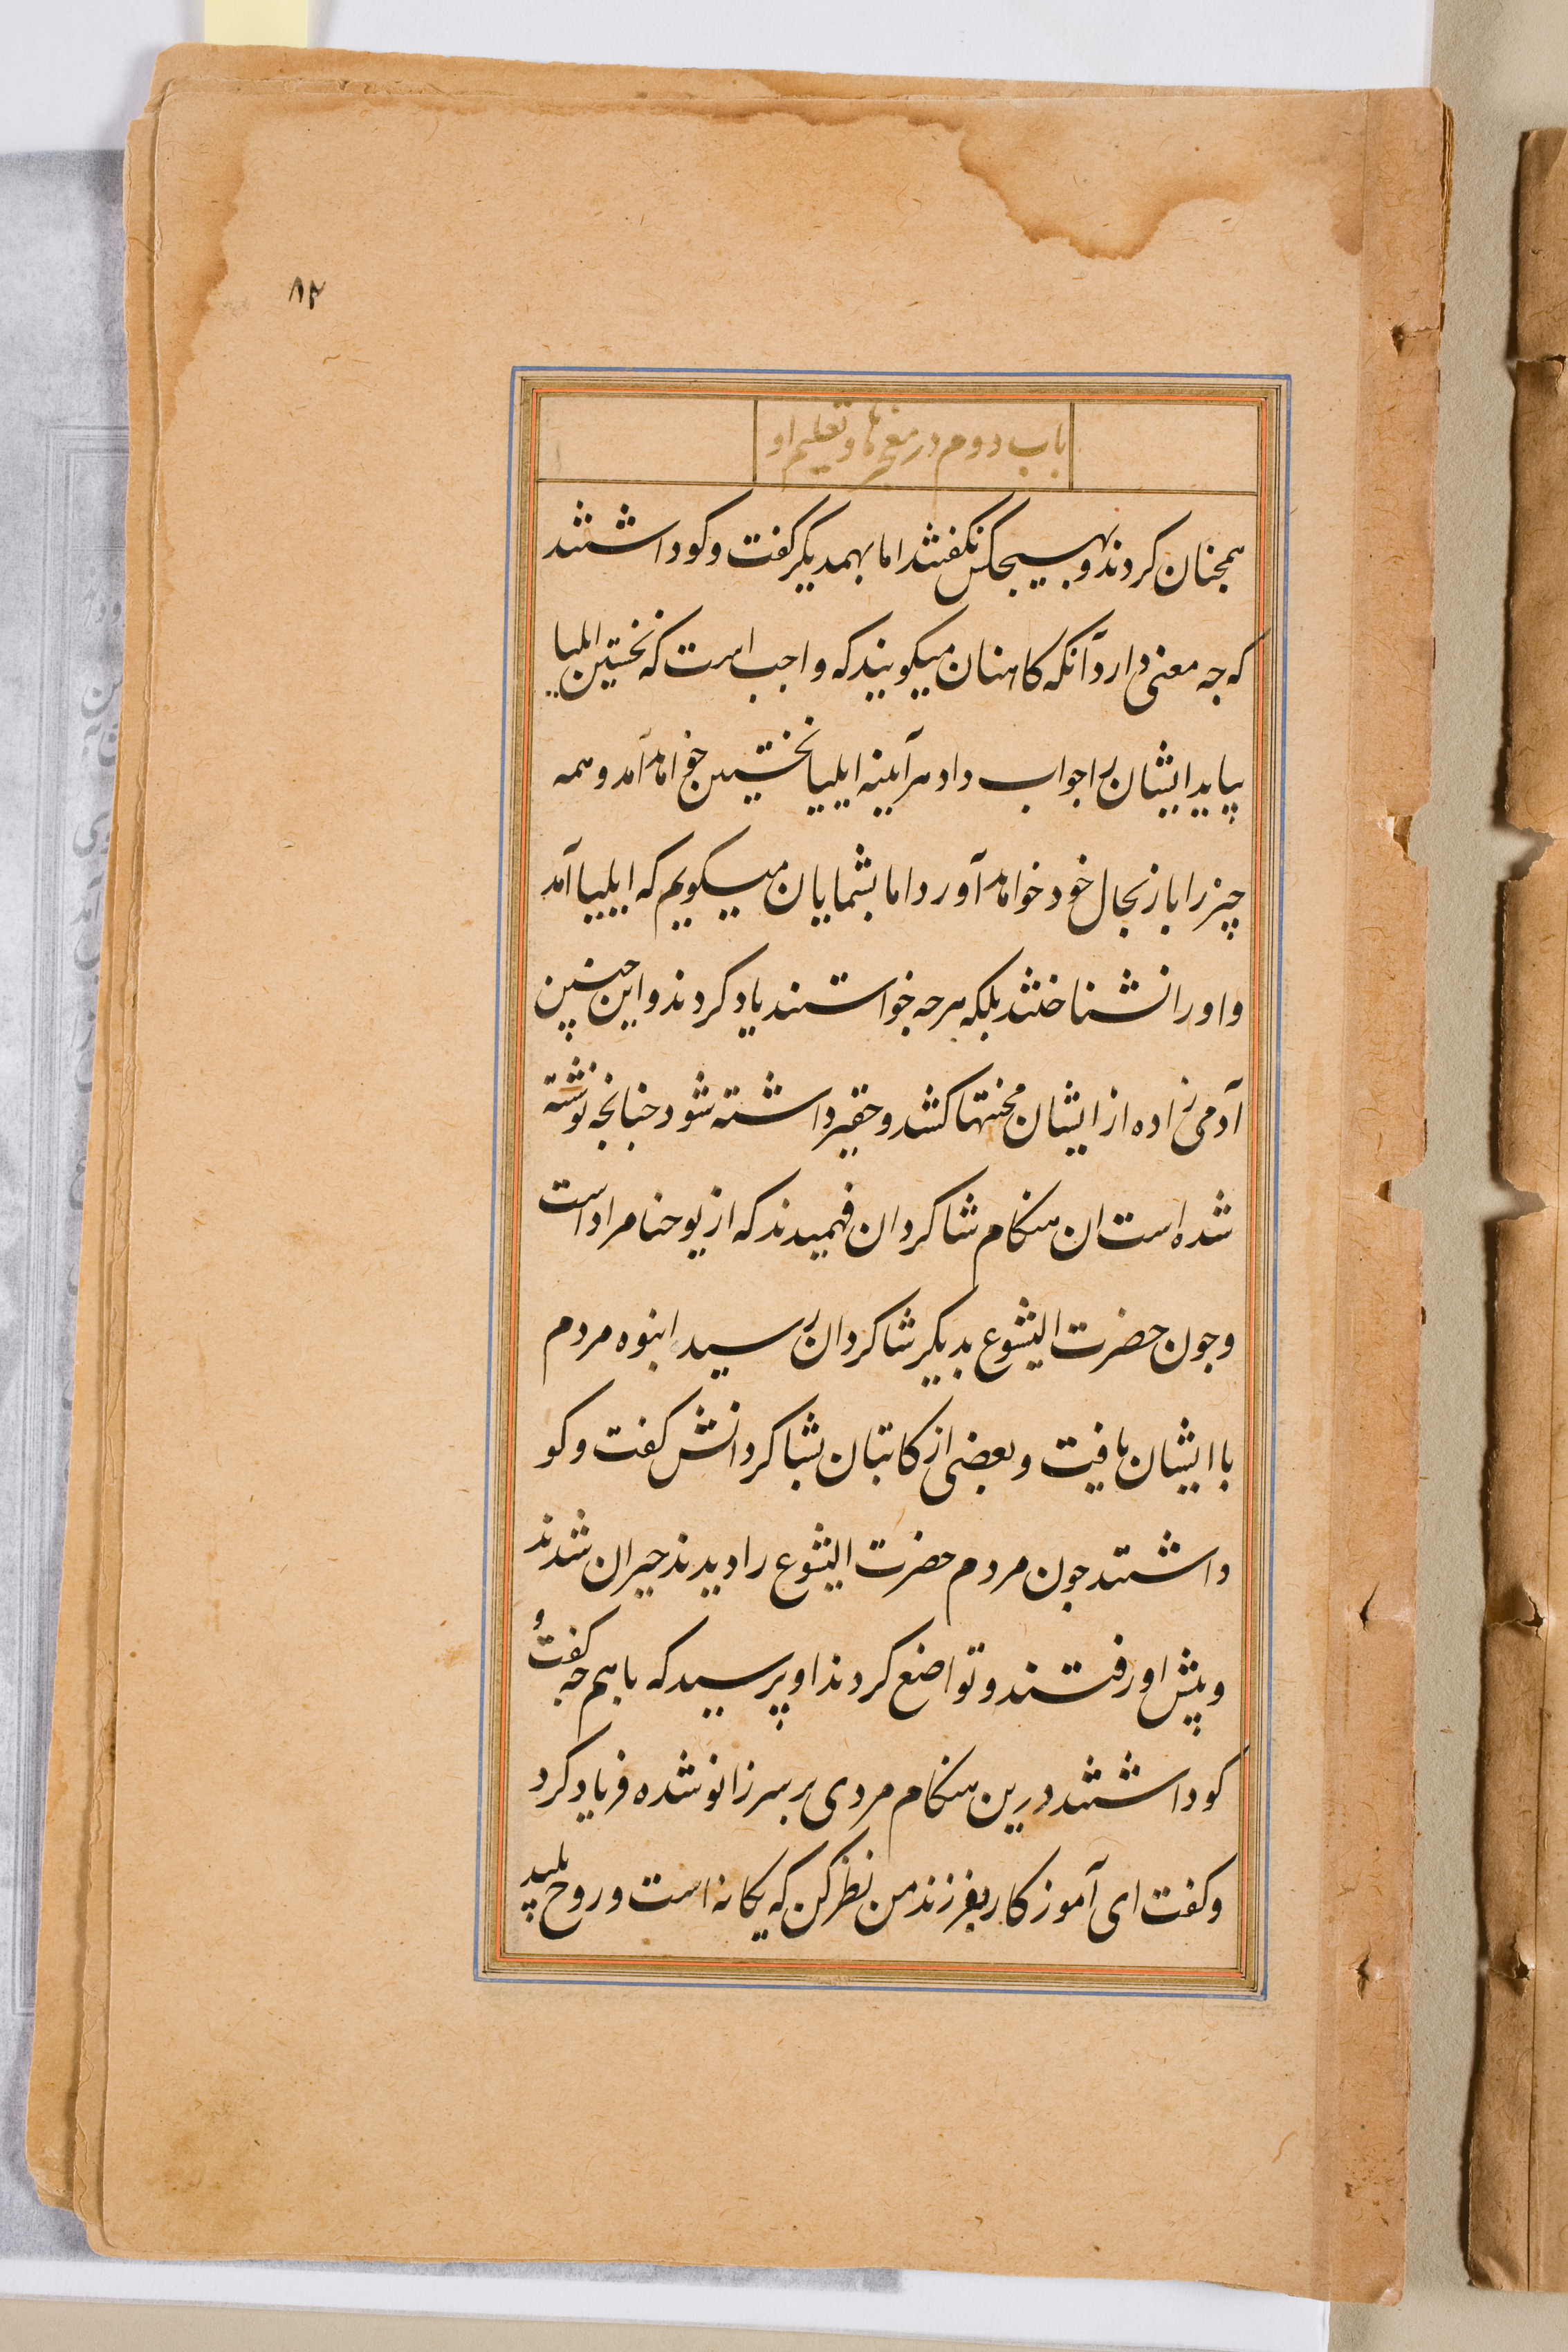 ۸۴
باب دوم در معجزها و تعلیم او
همجنان کردند و بهیجکس نکفتند اما بهمدیکر کفت و کو داشتند
که جه معنی دارد آنکه کاهنان میکویند که واجب است که نخستین ایلیا
بیاید ایشان را جواب داد هر آینه ایلیا نخستین خواهد آمد و همه
چیز را باز بحال خود خواهد آورد اما بشمایان میکویم که ایلیا آمد
و او را نشناختند بلکه هرجه خواستند یاد کردند و این چنین
آدمی زاده از ایشان محنتها کشد و حقیر داشته شود جنانجه نوشته
شده است ان هنکام شاکردان فهمیدند که از یوحنا مراد است
و جون حضرت ایشوع بدیکر شاکردان رسید انبوه مردم
با ایشان یافت و بعضی از کاتبان بشاکردانش کفت و کو
داشتند جون مردم حضرت ایشوع را دیدند حیران شدند
و پیش او رفتند و تواضع کردند او پرسید که باهم جه کفت و
کو داشتند درین هنکام مردی بر سر زانو شده فریاد کرد
و کفت ای آموزکار بفرزند من نظر کن که یکانه است و روح پلید